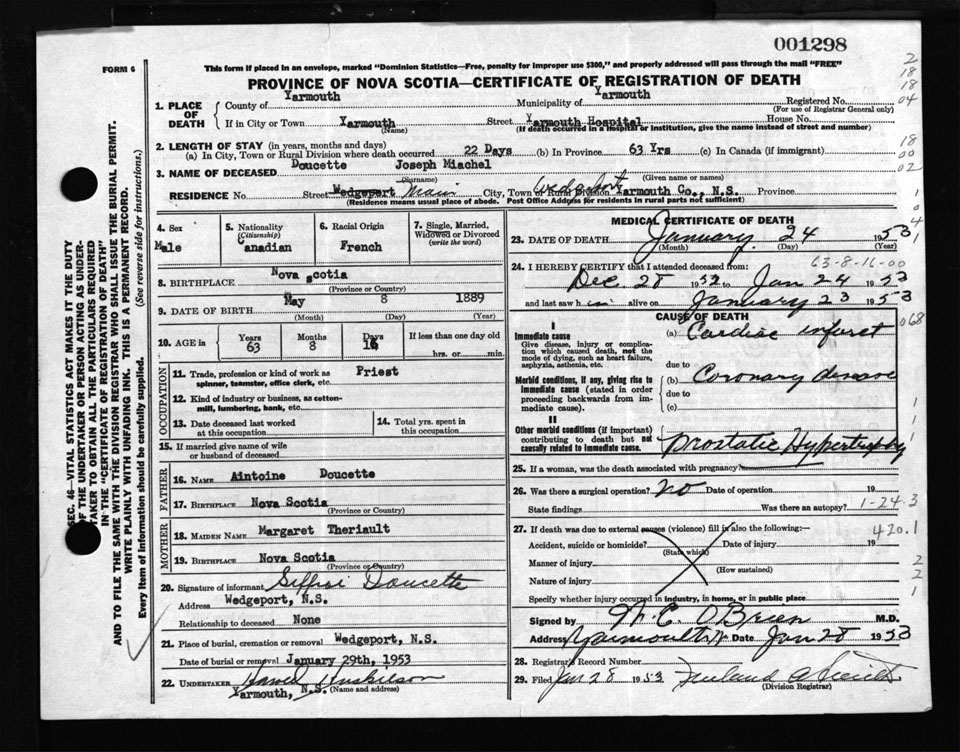 001298
FORM 6
This form if placed in an envelope, marked "Dominion Statistics—Free, penalty for improper use $300," and properly addressed will pass through the mail "FREE"
PROVINCE OF NOVA SCOTIA—CERTIFICATE OF REGISTRATION OF DEATH
SEC. 46—VITAL STATISTICS ACT MAKES IT THE DUTY
OF THE UNDERTAKER OR PERSON ACTING AS UNDER-
TAKER TO OBTAIN ALL THE PARTICULARS REQUIRED
IN THE "CERTIFICATE OF REGISTRATION OF DEATH"
AND TO FILE THE SAME WITH THE DIVISION REGISTRAR WHO SHALL ISSUE THE BURIAL PERMIT.
WRITE PLAINLY WITH UNFADING INK. THIS IS A PERMANENT RECORD.
Every item of information should be carefully supplied. (See reverse side for instructions.)
1. PLACE OF DEATH
County of Yarmouth Municipality of Yarmouth Registered No.
(For use of Registrar General only)
If in City or Town Yarmouth Street Yarmouth Hospital House No.
(Name) (If death occurred in a hospital or institution, give the name instead of street and number)
2. LENGTH OF STAY (in years, months and days)
(a) In City, Town or Rural Division where death occurred 22 Days (b) In Province 63 Yrs (c) In Canada (if immigrant)
3. NAME OF DECEASED Doucette Joseph Miachel
(Surname) (Given name or names)
RESIDENCE No. Street Wedgeport Main City, Town or Rural Division Wedgeport Yarmouth Co., N.S. Province
(Residence means usual place of abode. Post Office Address for residents in rural parts not sufficient)
4. Sex
Male
5. Nationality
(Citizenship)
Canadian
6. Racial Origin
French
7. Single, Married,
Widowed or Divorced
(write the word)
8. BIRTHPLACE Nova scotia
(Province or Country)
9. DATE OF BIRTH May 8 1889
(Month) (Day) (Year)
10. AGE in
Years 63
Months 8
Days 16
If less than one day old
hrs. or min.
OCCUPATION
11. Trade, profession or kind of work as Priest
spinner, teamster, office clerk, etc.
12. Kind of industry or business, as cotton-
mill, lumbering, bank, etc.
13. Date deceased last worked
at this occupation
14. Total yrs. spent in
this occupation
15. If married give name of wife
or husband of deceased
FATHER
16. Name Aintoine Doucette
17. Birthplace Nova Scotia
(Province or Country)
MOTHER
18. Maiden Name Margaret Theriault
19. Birthplace Nova Scotia
(Province or Country)
20. Signature of informant Siffroi Doucette
Address Wedgeport, N.S.
Relationship to deceased None
21. Place of burial, cremation or removal Wedgeport, N.S.
Date of burial or removal January 29th, 1953
22. UNDERTAKER Harold Huskilson
Yarmouth, N.S. (Name and address)
MEDICAL CERTIFICATE OF DEATH
23. DATE OF DEATH January 24 1953
(Month) (Day)
63-8-16-00
24. I HEREBY CERTIFY that I attended deceased from:
Dec. 28 1952 to Jan 24 1953
and last saw him alive on January 23 1953
CAUSE OF DEATH
I
Immediate cause
Give disease, injury or complica-
tion which caused death, not the
mode of dying, such as heart failure,
asphyxia, asthenia, etc.
(a) Cardiac infarct
due to
Morbid conditions, if any, giving rise to
immediate cause (stated in order
proceeding backwards from im-
mediate cause).
(b) Coronary disease
due to
(c)
II
Other morbid conditions (if important)
contributing to death but not
causally related to immediate cause.
Prostatic Hypertrophy
25. If a woman, was the death associated with pregnancy?
26. Was there a surgical operation? no Date of operation 19
State findings Was there an autopsy? 1-24-3
27. If death was due to external causes (violence) fill in also the following:—
420.1
Accident, suicide or homicide? Date of injury 19
(State which)
Manner of injury
(How sustained)
Nature of injury
Specify whether injury occurred in industry, in home, or in public place
Signed by W. C. O'Brien M.D.
Address Yarmouth, N. Date Jan 28 1953
28. Registrar's Record Number
29. Filed Jan 28 1953
(Division Registrar)
2
18
18
04
18
00
02
1
0
4
1
068
1
1
2
2
1